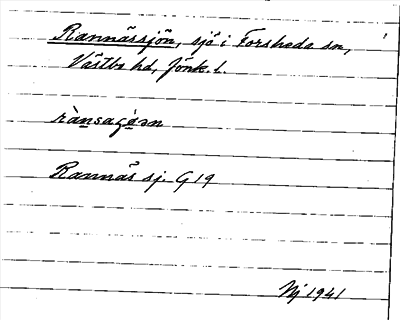 Rannässjön, sjö i Forsheda sn,
Västbo hd, Jönk. l.
rànsaʃøən
Rannäs sj. G19
Nj 1941